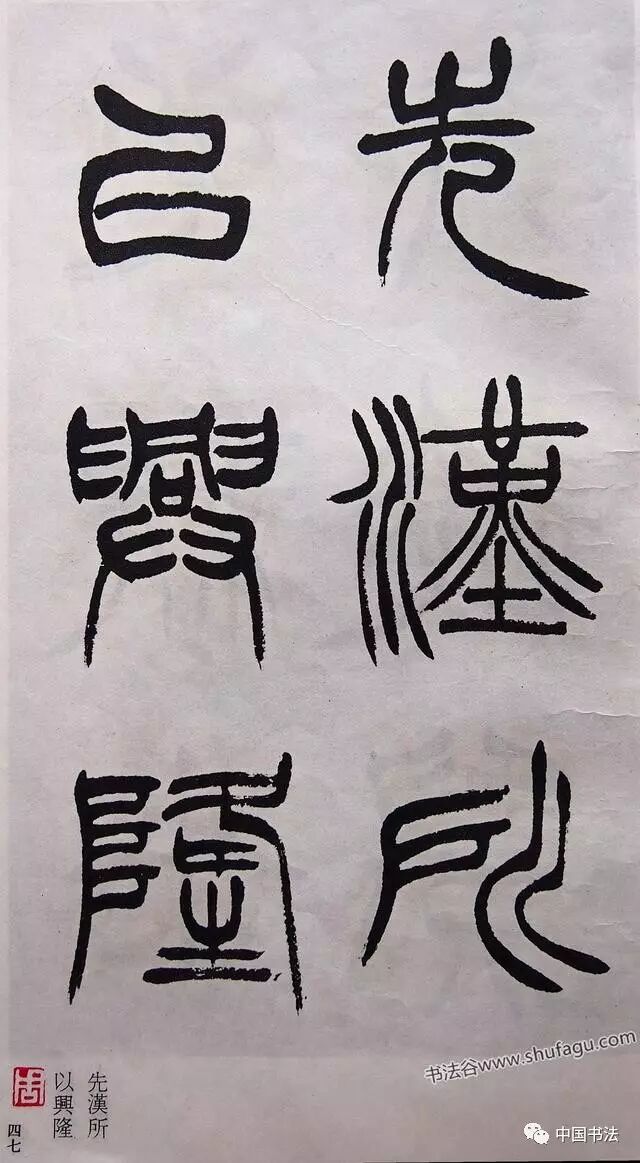 先漢所
以興隆
先漢所
以興隆
四七
书法谷www.shufagu.com
中国书法